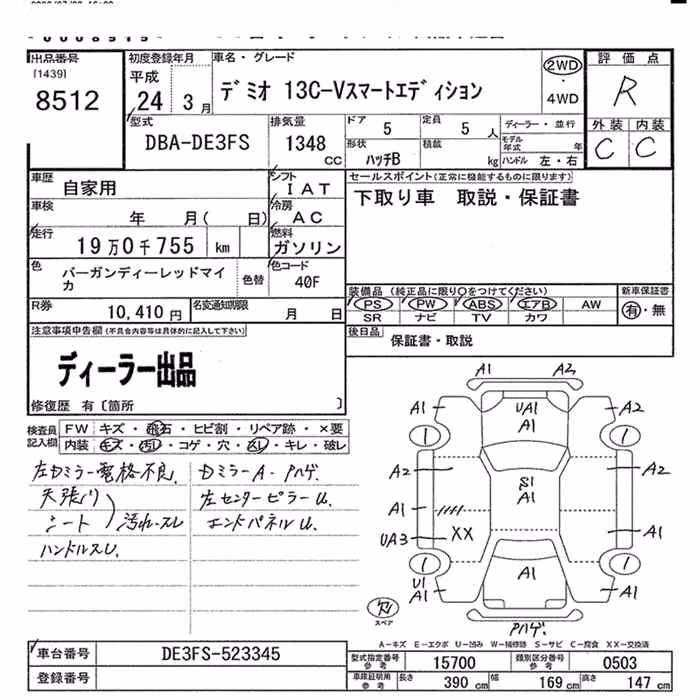 出品番号
[1439]
8512
初度登録年月
平成
24 3月
車名・グレード
デミオ 13C-Vスマートエディション
2WD
・
4WD
評価点
R
外装 内装
C C
型式
DBA-DE3FS
排気量
1348
CC
ドア 5
定員 5 人
形状 ハッチB
積載 kg
ディーラー・並行
モデル年式 年
ハンドル 左・右
車歴
自家用
シフト
IAT
車検
年 月( 日)
冷房
AC
走行
19万0千755 km
燃料
ガソリン
色
バーガンディーレッドマイカ
色替
色コード
40F
R券 10,410円
名変通知期限 月 日
セールスポイント(正常に機能するものに限ります)
下取り車 取説・保証書
装備品 (純正品に限り○をつけてください)
PS PW ABS エアB AW
SR ナビ TV カワ
新車保証書
有・無
後日品
保証書・取説
注意事項申告欄(不具合内容等は具体的に記入して下さい)
ディーラー出品
修復歴 有〔箇所 〕
検査員記入欄
FW キズ・飛石・ヒビ割・リペア跡・×要
内装 キズ・汚れ・コゲ・穴・スレ・キレ・破レ
左Dミラー電格不良. Dミラー A・ハゲ.
天張り 左センターピラー U.
シート 汚れ・スレ エンドパネル U.
ハンドルスレ.
A1 A2
A1 UA1 A2
A1
1 1
A2 S1 A2
A1
A1 A1
UA3 XX
1 1
U1 A1
A1 A1
スペア
A・ハゲ.
A－キズ E－エクボ U－凹み W－補修跡 S－サビ C－腐食 XX－交換済
車台番号 DE3FS-523345
登録番号
型式指定番号参考 15700
類別区分番号参考 0503
車庫証明用参考
長さ 390 cm 幅 169 cm 高さ 147 cm